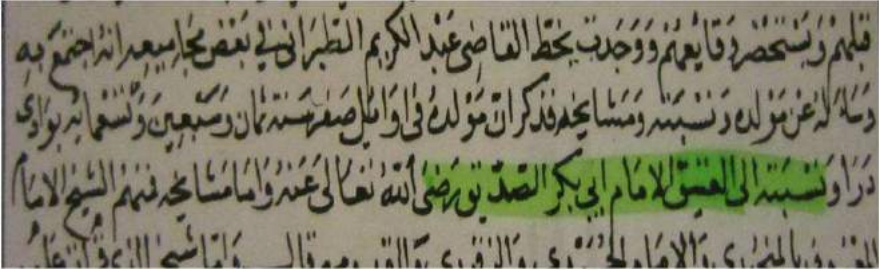 قبلهم ويستحضر وقايعهم ووجدت بخط القاضي عبد الكريم الطبراني في بعض مجاميعه انه اجتمع به
وساله عن مولده ونسبته ومشايخه فذكر ان مولده في اوايل صفر سنة ثمان وسبعين وتسعماية بوادي
درا ونسبته الى العتيق الامام ابي بكر الصديق رضي الله تعالى عنه واما مشايخه فمنهم الشيخ الامام
والامام قال واما شيخ الذي قرات عليه